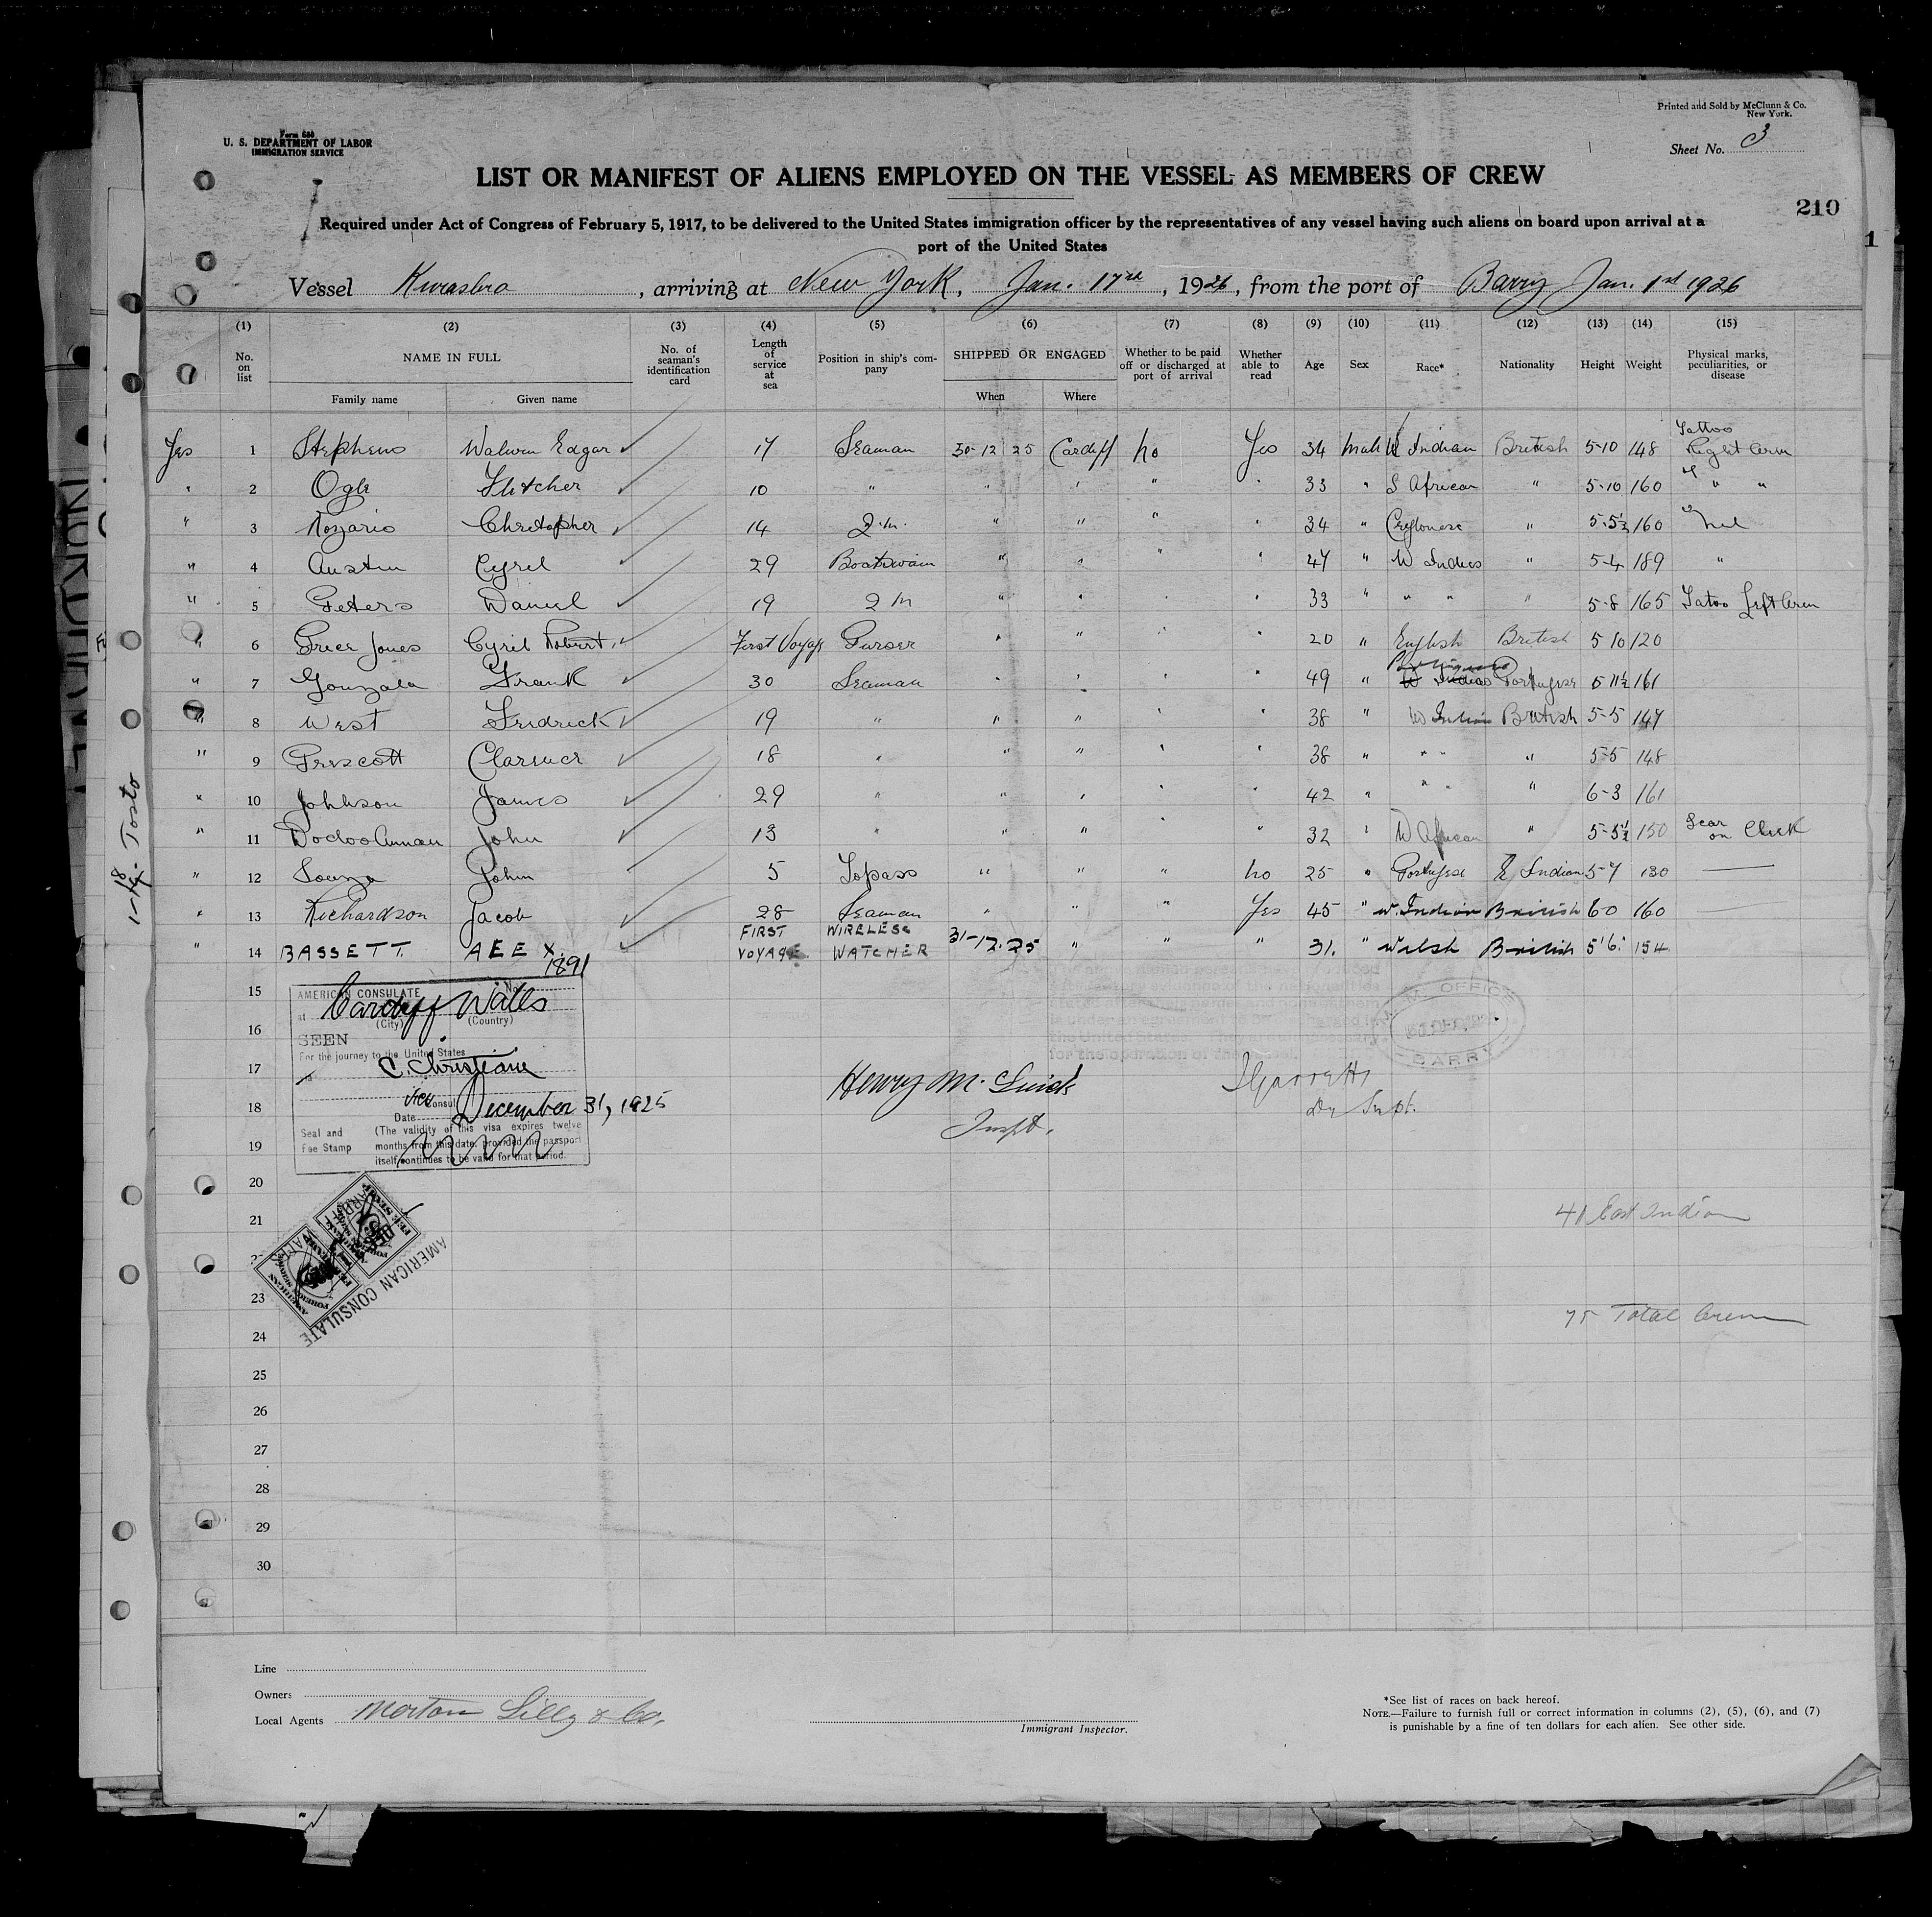 Printed and Sold by McClunn & Co.
New York.
Form 680
U. S. DEPARTMENT OF LABOR
IMMIGRATION SERVICE
Sheet No. 3
LIST OR MANIFEST OF ALIENS EMPLOYED ON THE VESSEL AS MEMBERS OF CREW
210
Required under Act of Congress of February 5, 1917, to be delivered to the United States immigration officer by the representatives of any vessel having such aliens on board upon arrival at a
port of the United States
Vessel Kurasbro, arriving at New York, Jan. 17th, 1926, from the port of Barry Jan. 1st 1926
(1) (2) (3) (4) (5) (6) (7) (8) (9) (10) (11) (12) (13) (14) (15)
No. on list NAME IN FULL No. of seaman's identification card Length of service at sea Position in ship's company SHIPPED OR ENGAGED Whether to be paid off or discharged at port of arrival Whether able to read Age Sex Race* Nationality Height Weight Physical marks, peculiarities, or disease
Family name Given name When Where
Yes 1 Stephens Edgar 17 Seaman 30-12 25 Cardiff no Yes 34 male W Indian British 5-10 148 Tattoo Right Arm
" 2 Ogle Fletcher 10 " " " " " 33 " S African " 5-10 160 " "
" 3 Rozario Christopher 14 2.m. " " " " 34 " Ceylonese " 5-5½ 160 nil
" 4 Austin Cyril 29 Boatswain " " " " 47 " W Indies " 5-4 189 "
" 5 Peters Daniel 19 2 m " " " " 33 " " " " 5-8 165 Tatoo Left Arm
" 6 Price Jones Cyril Robert 1 First Voyage Purser " " " " 20 " English British 5 10 120
" 7 Gonzala Frank 30 Seaman " " " " 49 " W Indies Portugese 5 11½ 161
" 8 West Fredrick 19 " " " " " 38 " W Indian British 5-5 147
" 9 Prescott Clarence 18 " " " " " 38 " " " " 5-5 148
" 10 Johnson James 29 " " " " " 42 " " " " 6-3 161
" 11 Dodoo Annan John 13 " " " " " 32 " W African " 5-5½ 150 Scar on Cheek
" 12 Souza John 5 Topass " " " no 25 " Portugese E Indian 5-7 130 —
" 13 Richardson Jacob 28 Seaman " " " Yes 45 " W. Indian British 6 0 160 —
" 14 BASSETT. ALEX. FIRST VOYAGE WIRELESS WATCHER 31-12.25 " " " 31. " Welsh British 5'6" 154
1891
15
16
17
18
19
20
21
23
24
25
26
27
28
29
30
AMERICAN CONSULATE No.
at Cardiff Wales
(City) (Country)
SEEN
For the journey to the United States
C. Christiane
Vice Consul
Date December 31, 1925
Seal and Fee Stamp
(The validity of this visa expires twelve
months from this date, provided the passport
itself continues to be valid for that period.
AMERICAN CONSULATE
OFFICE
BARRY
for the operation of the vessel.
Henry M.
Inspt.
J Garrett
Dy Supt.
41 East Indian
75 Total Crew
Line
Owners
Local Agents Morton Lilly & Co.
Immigrant Inspector.
*See list of races on back hereof.
NOTE.—Failure to furnish full or correct information in columns (2), (5), (6), and (7)
is punishable by a fine of ten dollars for each alien. See other side.